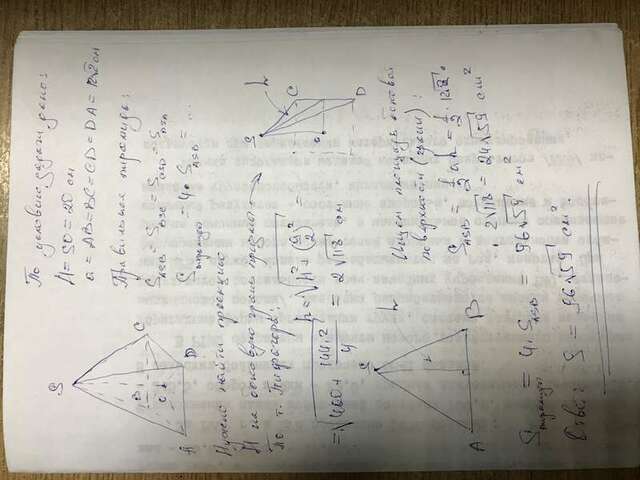 По условию задачи дано:
H = SO = 20 см
a = AB = BC = CD = DA = 12√2 см
Правильная пирамида:
S_ASB = S_BSC = S_CSD = S_DSA
S_пирамиды = 4 · S_ASB = ...
S
B
C
O
A
D
Нужно найти проекцию
H на боковую грань призмы
По т. Пифагора:
h = √(H² + (a/2)²) =
= √(400 + 144·2/4) = 2√118 см
S
h
C
O
D
S
h
h
A
B
Ищем площадь боковой
поверхности (грани):
S_ASB = 1/2 ah = 1/2 · 12√2 ·
· 2√118 = 24√59 см²
S_пирамиды = 4 · S_ASB = 96√59 см²
Ответ: S = 96√59 см².